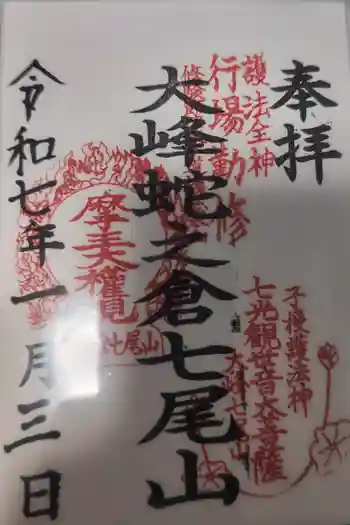 奉拝
護法全神
行場動修
大峰蛇之倉七尾山
子授護法神
七光観世音大菩薩
大峰七尾山
七尾山
令和七年一月三日